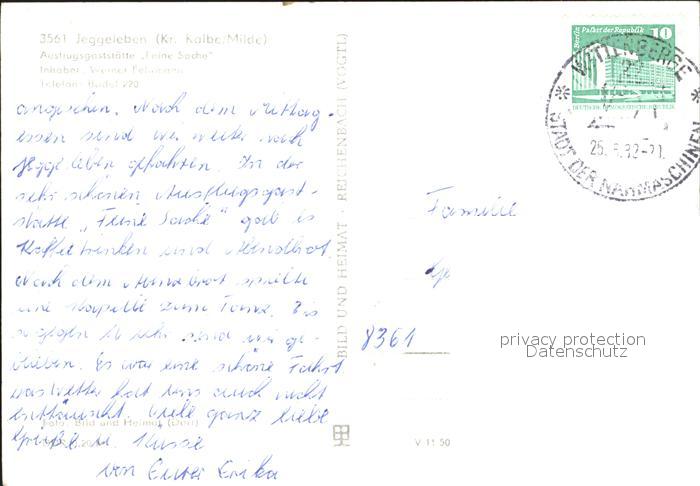 3561 Jeggeleben (Kr. Kalbe/Milde)
Ausflugsgaststätte „Feine Sache"
Inhaber: Werner
Telefon: Badel 220
angesehen. Nach dem Mittag-
essen sind wir weiter nach
Jeggeleben gefahren. In der
sehr schönen Ausflugsgast-
stätte „Feine Sache" gab es
Kaffeetrinken und Abendbrot.
Nach dem Abendbrot spielte
eine Kapelle zum Tanz. Bis
gegen Uhr sind wir ge-
blieben. Es war eine schöne Fahrt
das Wetter hat uns auch nicht
enttäuscht. Viele ganz liebe
Grüße u. Küsse
von Eurer Erika
Foto: Bild und Heimat (Dörr)
BILD UND HEIMAT · REICHENBACH (VOGTL)
V 11 50
Familie
8361
privacy protection
Datenschutz
Berlin Palast der Republik 10
DEUTSCHE DEMOKRATISCHE REPUBLIK
WITTENBERGE
25.5.82-21
STADT DER NÄHMASCHINEN